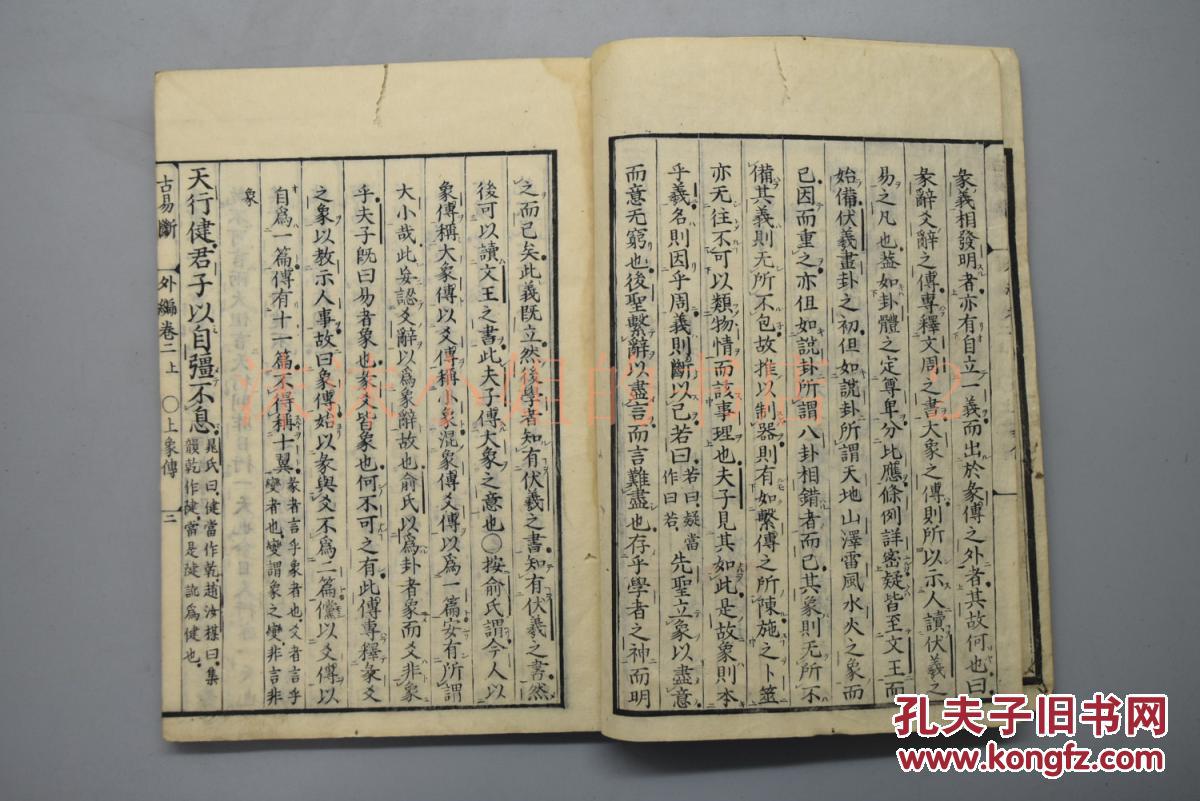 彖義相發明者亦有自立一義而出於彖傳之外者其故何也曰
彖辭爻辭之傳專釋文周之書大象之傳則所以示人讀伏羲之
易之凡也葢如卦體之定尊卑分比應條例詳密疑皆至文王而
始備伏羲畫卦之初但如說卦所謂天地山澤雷風水火之象而
已因而重之亦但如說卦所謂八卦相錯者而已其象則无所不
備其義則无所不包故推以制器則有如繫傳之所陳施之卜筮
亦无往不可以類物情而該事理也夫子見其如此是故象則本
乎羲名則因乎周義則斷以己若曰
若曰疑當
作曰若
先聖立象以盡意
而意无窮也後聖繫辭以盡言而言難盡也存乎學者之神而明
之而已矣此義既立然後學者知有伏羲之書知有伏羲之書然
後可以讀文王之書此夫子傳大象之意也○按俞氏謂今人以
象傳稱大象傳以爻傳稱小象混象傳爻傳以爲一篇安有所謂
大小哉此妄認爻辭以爲象辭故也俞氏以爲卦者象而爻非象
乎夫子既曰易者象也彖爻皆象也何不可之有此傳專釋彖爻
之象以教示人事故曰象傳始以彖與爻不爲二篇儻以爻傳以
自爲一篇傳有十一篇不得稱十翼
彖者言乎象者也爻者言乎
變者也變謂象之變非言非
象
天行健君子以自彊不息
晁氏曰健當作乾趙汝楳曰集
韻乾作健當是健訛爲健也
古易斷 外編卷二上 ○上象傳 二
孔夫子旧书网
www.kongfz.com